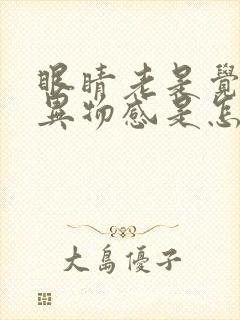 眼睛老是覺
異物感是怎
大島優子